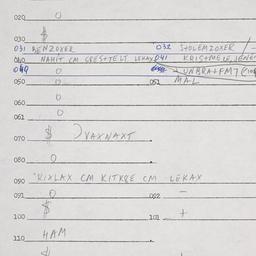 020 0
030 $
031 BENZOXER 032 SHOLEMZOXER /-
040 NAHIT CM GRESHTELT LEKAX 041
049 0 + UNBRA+FM7
050 0 051 MAL
060 0
061 0
070 $ ) VAXNAXT
080 0
090 "KIXLAX CM KITKRE CM LEKAX
091 0 092 -
100 $ 101 +
110 HAM
$